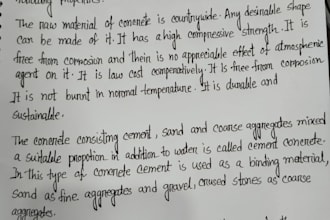 building properties.
The raw material of concrete is countrywide. Any desirable shape
can be made of it. It has a high compressive strength. It is
free from corrosion and their is no appreciable effect of atmospheric
agent on it. It is low cost comperatively. It is free from corrosion
It is not burnt in noromal temperature. It is durable and
sustainable.
The concrete consisting cement, sand and coarse aggregates mixed
a suitable propotion in addition to water is called cement concrete.
In this type of concrete cement is used as a binding material,
sand as fine aggregates and gravel, crused stones as coarse
aggregates.